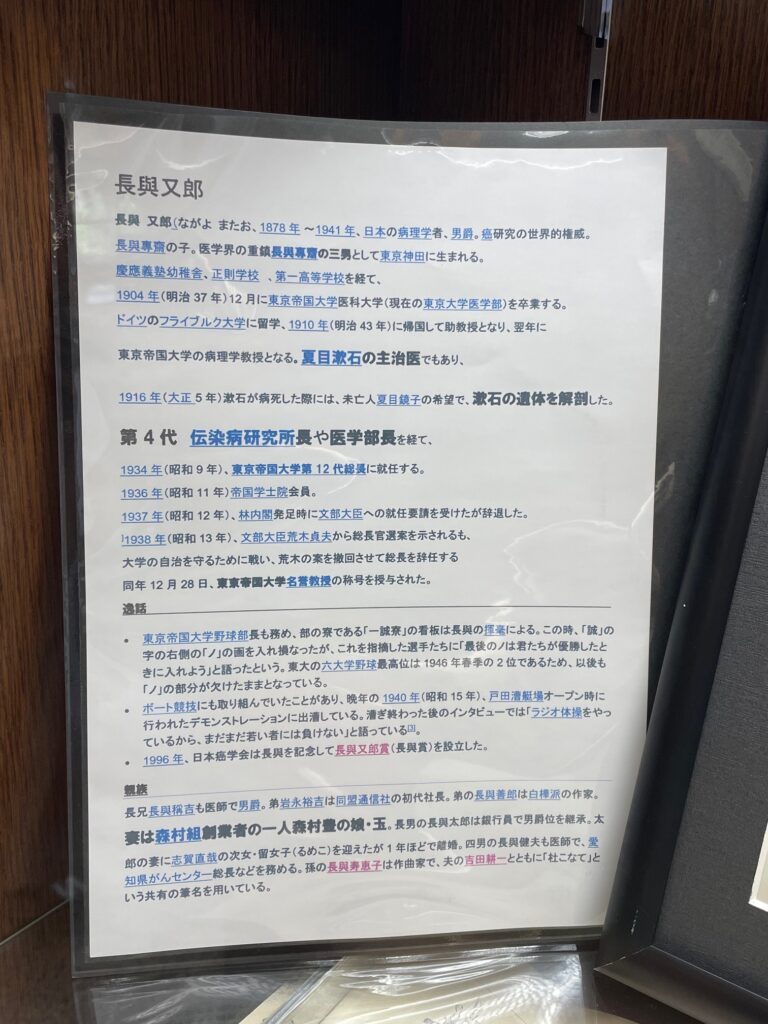 長與又郎
長與 又郎(ながよ またお、1878年～1941年、日本の病理学者、男爵。癌研究の世界的権威。
長與專齋の子。医学界の重鎮長與專齋の三男として東京神田に生まれる。
慶應義塾幼稚舎、正則学校 、第一高等学校を経て、
1904年(明治37年)12月に東京帝国大学医科大学(現在の東京大学医学部)を卒業する。
ドイツのフライブルク大学に留学、1910年(明治43年)に帰国して助教授となり、翌年に
東京帝国大学の病理学教授となる。夏目漱石の主治医でもあり、
1916年(大正5年)漱石が病死した際には、未亡人夏目鏡子の希望で、漱石の遺体を解剖した。
第4代 伝染病研究所長や医学部長を経て、
1934年(昭和9年)、東京帝国大学第12代総長に就任する。
1936年(昭和11年)帝国学士院会員。
1937年(昭和12年)、林内閣発足時に文部大臣への就任要請を受けたが辞退した。
]1938年(昭和13年)、文部大臣荒木貞夫から総長官選案を示されるも、
大学の自治を守るために戦い、荒木の案を撤回させて総長を辞任する
同年12月28日、東京帝国大学名誉教授の称号を授与された。
逸話
• 東京帝国大学野球部長も務め、部の寮である「一誠寮」の看板は長與の揮毫による。この時、「誠」の
字の右側の「ノ」の画を入れ損なったが、これを指摘した選手たちに「最後のノは君たちが優勝したと
きに入れよう」と語ったという。東大の六大学野球最高位は1946年春季の2位であるため、以後も
「ノ」の部分が欠けたままとなっている。
• ボート競技にも取り組んでいたことがあり、晩年の1940年(昭和15年)、戸田漕艇場オープン時に
行われたデモンストレーションに出漕している。漕ぎ終わった後のインタビューでは「ラジオ体操をやっ
ているから、まだまだ若い者には負けない」と語っている[3]。
• 1996年、日本癌学会は長與を記念して長與又郎賞(長與賞)を設立した。
親族
長兄長與稱吉も医師で男爵。弟岩永裕吉は同盟通信社の初代社長。弟の長與善郎は白樺派の作家。
妻は森村組創業者の一人森村豊の娘・玉。長男の長與太郎は銀行員で男爵位を継承。太
郎の妻に志賀直哉の次女・留女子(るめこ)を迎えたが1年ほどで離婚。四男の長與健夫も医師で、愛
知県がんセンター総長などを務める。孫の長與寿恵子は作曲家で、夫の吉田耕一とともに「杜こなて」と
いう共有の筆名を用いている。